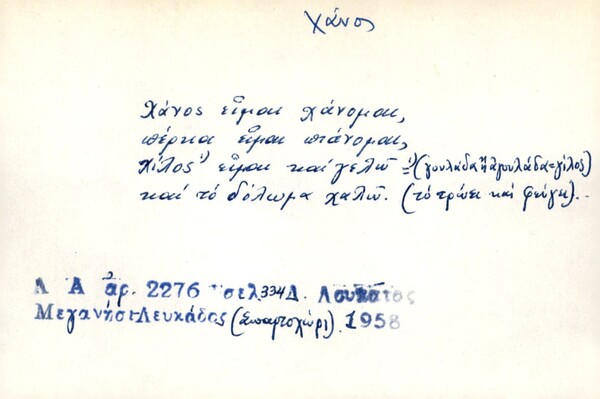 Χάνος
Χάνος εἶμαι χάνομαι,
πέρκα εἶμαι πιάνομαι,
χίλος¹⁾ εἶμαι καί γελῶ =¹⁾(γουλάδα ἤ ἀγουλάδα=γίλος)
καί τό δόλωμα χαλῶ. (τό τρώει καί φεύγει)..
Λ Α ἀρ. 2276 σελ 334 Δ. Λουκάτος
Μεγανήσι Λευκάδος (Σπαρτοχώρι). 1958